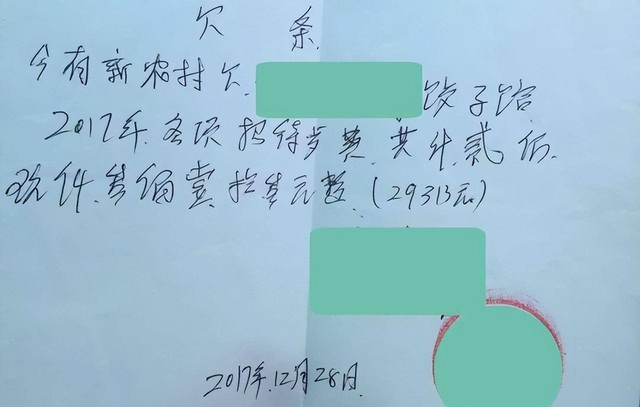 欠 条
今有新农村欠 饺子馆
2017年各项招待歺费,共计贰万
玖仟叁佰壹拾叁元整(29313元)
2017年12月28日